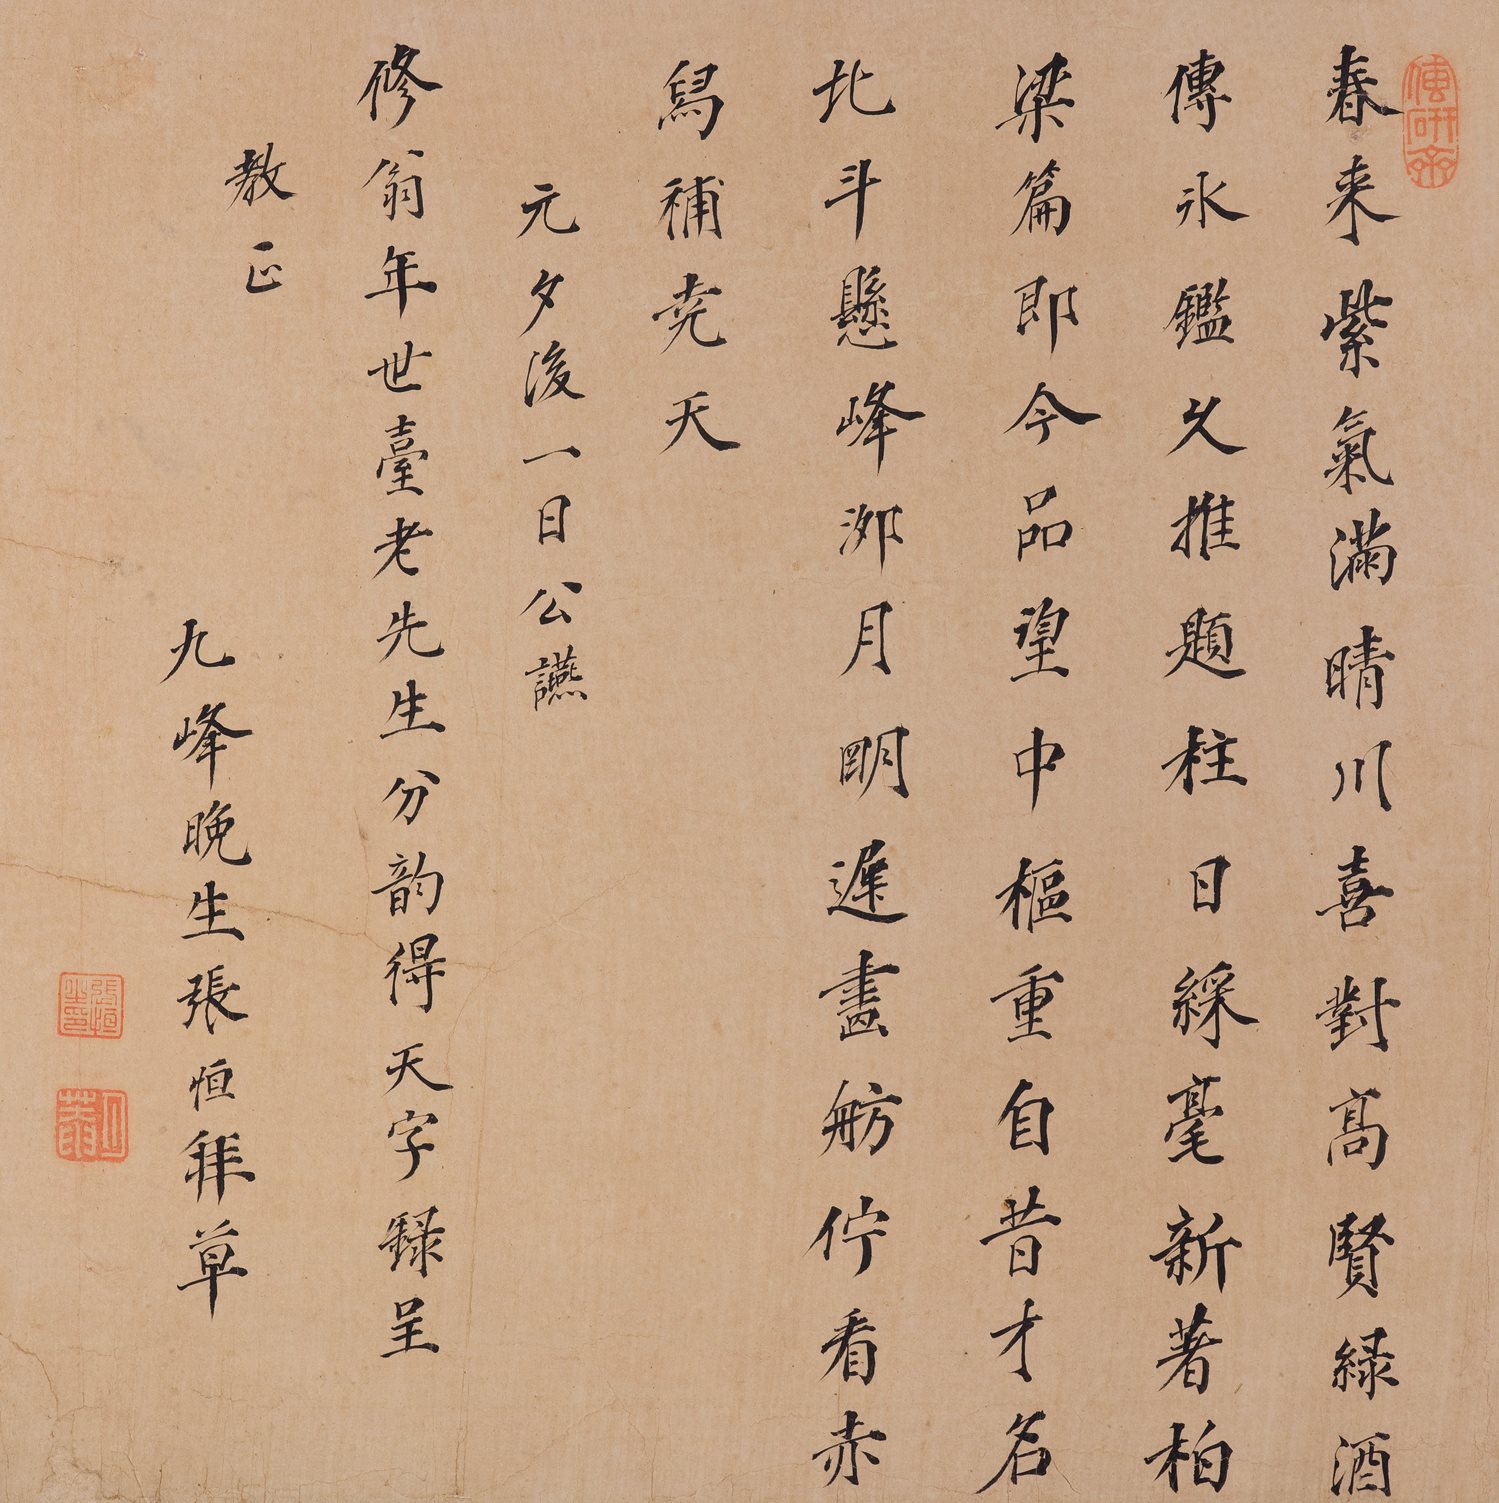 春来紫氣滿晴川喜對髙賢緑酒
傳永鑑久推題柱日綵毫新著柏
梁篇即今品望中樞重自昔才名
北斗懸峰泖月明遲畫舫佇看赤
舄補尭天
元夕後一日公讌
修翁年世臺老先生分韵得天字録呈
教正
九峰晚生張恒拜草